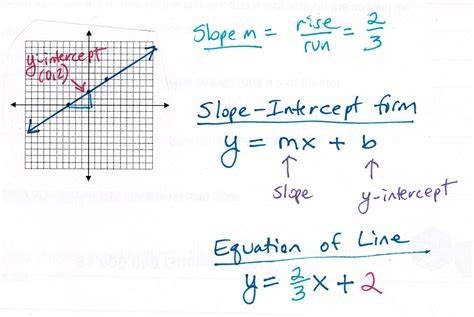 y-intercept
(0,2)
Slope m = rise/run = 2/3
Slope-Intercept form
y = mx + b
↑ ↑
slope y-intercept
Equation of Line
y = 2/3 x + 2